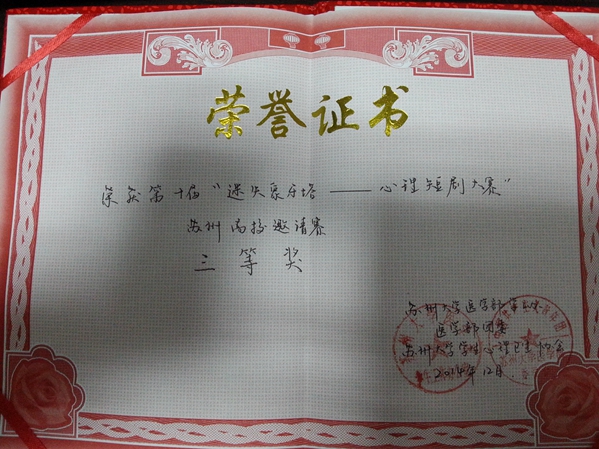 荣誉证书
荣获第十届“迷失象牙塔——心理短剧大赛”
苏州高校邀请赛
三等奖
苏州大学医学部
医学部团委
苏州大学学生心理卫生协会
2014年12月